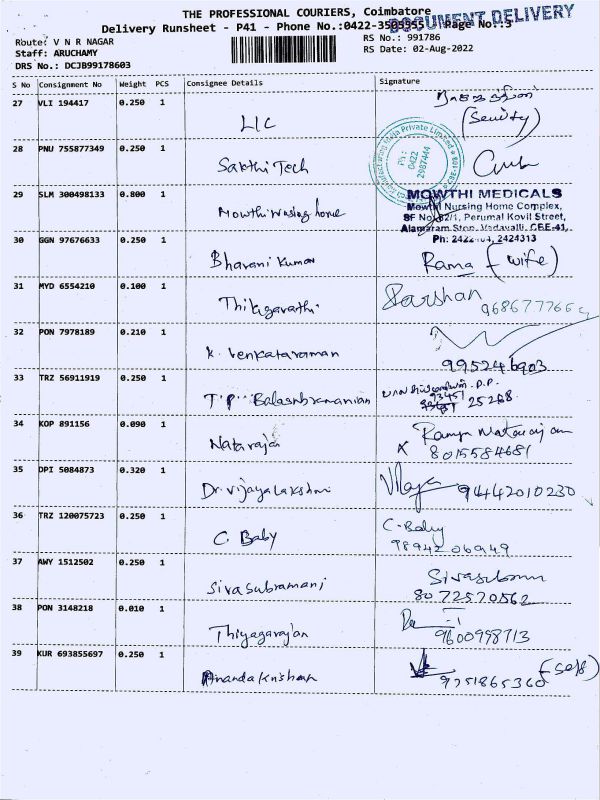 THE PROFESSIONAL COURIERS, Coimbatore
DOCUMENT DELIVERY
Delivery Runsheet - P41 - Phone No.:0422-3505955 Page No.:3
Route: V N R NAGAR
RS No.: 991786
Staff: ARUCHAMY
RS Date: 02-Aug-2022
DRS No.: DCJB99178603
S No Consignment No Weight PCS Consignee Details Signature
27 VLI 194417 0.250 1 LIC
28 PNU 755877349 0.250 1 Sakthi Tech
Private Limited
Ph :
0422
2987444
29 SLM 300498133 0.800 1 Mowthi nursing home
MOWTHI MEDICALS
Mowthi Nursing Home Complex,
SF No.82/1, Perumal Kovil Street,
Alamaram Stop, Vadavalli, CBE-41.
Ph: 2422104, 2424313
30 GGN 97676633 0.250 1 Bhavani Kumar Rama (wife)
31 MYD 6554210 0.100 1 Thikgarathi Darshan
32 PON 7978189 0.210 1 K. Venkataraman
995246903
33 TRZ 56911919 0.250 1 T.P. Balasubramanian
93451 25268
34 KOP 891156 0.090 1 Natarajan
8015584681
35 DPI 5084873 0.320 1 Dr. Vijayalakshmi Vijaya 9442010230
36 TRZ 120075723 0.250 1 C. Baby C. Baby
9894206949
37 AWY 1512502 0.250 1 Sivasubramani
8072570562
38 PON 3148218 0.010 1 Thiyagarajan
9600998713
39 KUR 693855697 0.250 1 Anandakrishnan (self)
9751865360